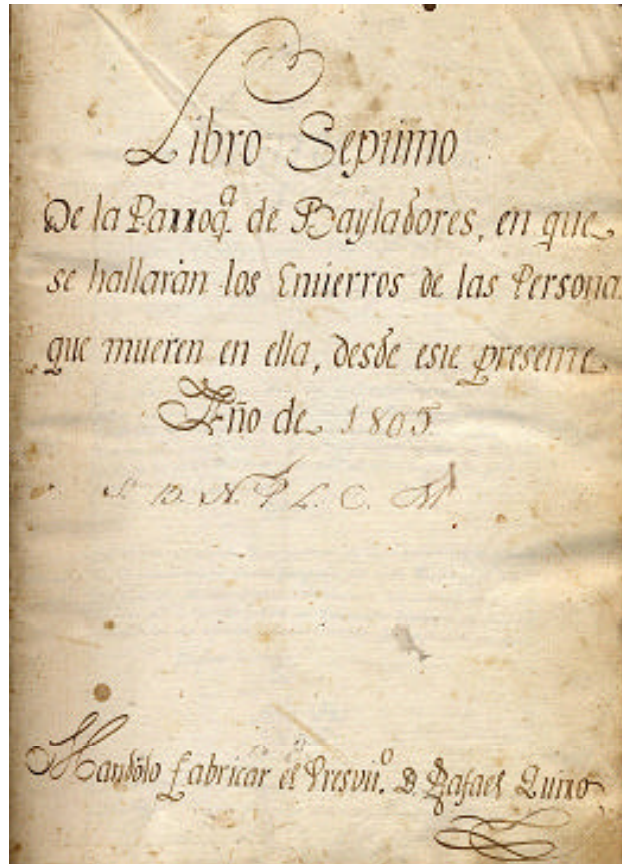 Libro Septimo
De la Parroq.ª de Bayladores, en que
se hallarán los Entierros de las Persona
que mueren en ella, desde este presente
Año de 1805
S. D. N. P. L. C. M
Mandólo fabricar el Presvit.º D. Rafael Quiro